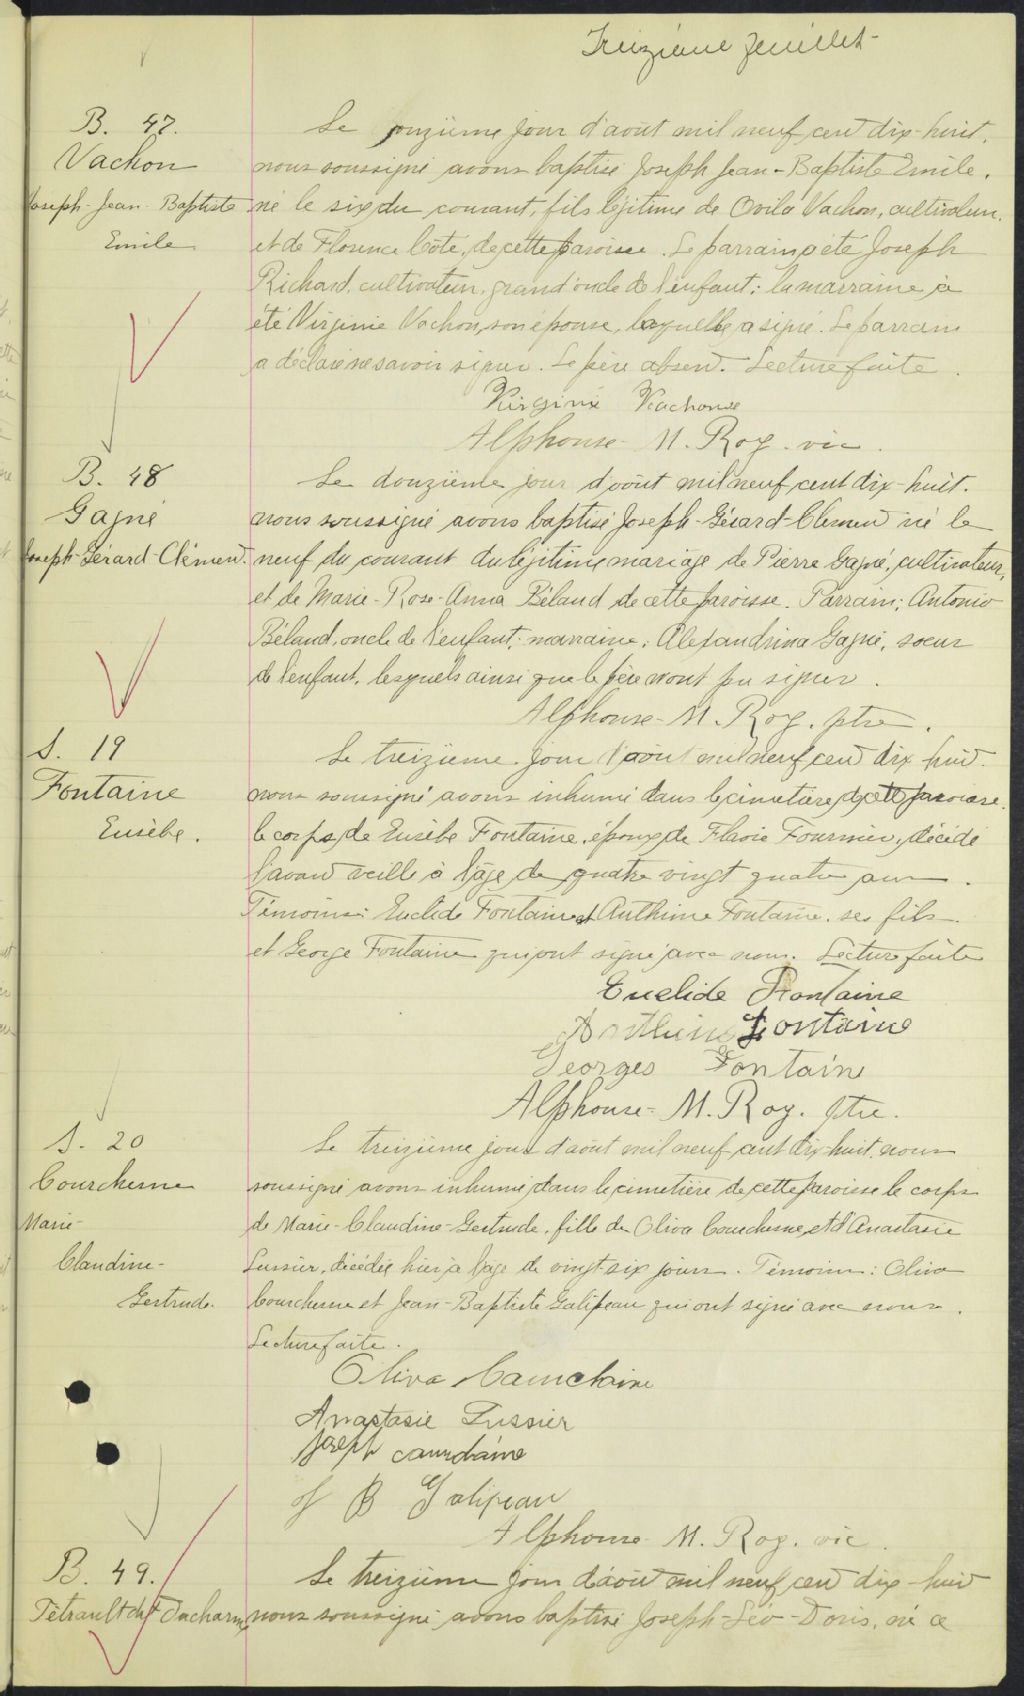 Treizième feuillet
B. 47.
Vachon
Joseph-Jean-Baptiste
Emile
Le onzième jour d'août mil neuf cent dix-huit,
nous soussigné avons baptisé Joseph Jean-Baptiste Emile,
né le six du courant, fils légitime de Ovila Vachon, cultivateur,
et de Florence Côté, de cette paroisse. Le parrain a été Joseph
Richard, cultivateur, grand'oncle de l'enfant; la marraine a
été Virginie Vachon, son épouse, laquelle a signé. Le parrain
a déclaré ne savoir signer. Le père absent. Lecture faite.
Virginie Vachonne
Alphonse-M. Roy. vic.
B. 48
Gagné
Joseph-Gérard-Clément.
Le douzième jour d'août mil neuf cent dix-huit.
nous soussigné avons baptisé Joseph-Gérard-Clément né le
neuf du courant du légitime mariage de Pierre Gagné, cultivateur,
et de Marie-Rose-Anna Béland de cette paroisse. Parrain; Antonio
Béland, oncle de l'enfant; marraine; Alexandrina Gagné, soeur
de l'enfant, lesquels ainsi que le père n'ont pu signer.
Alphonse-M. Roy. ptre.
S. 19
Fontaine
Eusèbe.
Le treizième jour d'août mil neuf cent dix huit.
nous soussigné avons inhumé dans le cimetière de cette paroisse.
le corps de Eusèbe Fontaine, époux de Flavie Fournier, décédé
l'avant veille à l'âge de quatre vingt quatre ans.
Témoins: Euclide Fontaine et Anthime Fontaine. ses fils
et George Fontaine qui ont signé avec nous. Lecture faite
Euclide Fontaine
Anthime Fontaine
Georges Fontaine
Alphonse-M. Roy. ptre.
S. 20
Courchesne
Marie-
Claudine-
Gertrude.
Le treizième jour d'août mil neuf cent dix-huit. nous
soussigné avons inhumé dans le cimetière de cette paroisse le corps
de Marie-Claudine-Gertrude, fille de Oliva Courchesne et d'Anastasie
Lussier, décédée hier à l'âge de vingt six jours. Témoins: Oliva
Courchesne et Jean-Baptiste Galipeau qui ont signé avec nous.
Lecture faite.
Oliva
Anastasie Lussier
Joseph
J B Galipeau
Alphonse-M. Roy. vic.
B. 49.
Tétrault dit Ducharme
Le treizième jour d'août mil neuf cent dix-huit
nous soussigné avons baptisé Joseph-Léo-Doris, né ce